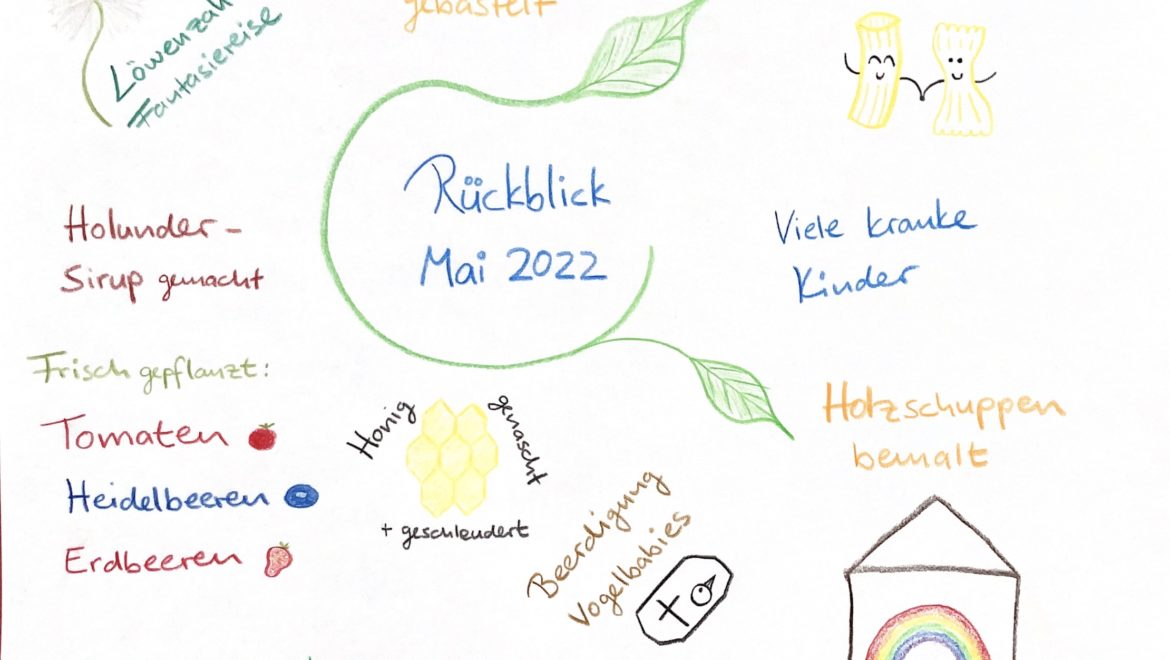 Löwenzah
Fantasiereise
gebastelt
Rückblick
Mai 2022
Holunder-
Sirup gemacht
Viele kranke
Kinder
Frisch gepflanzt:
Tomaten
Heidelbeeren
Erdbeeren
Honig
genascht
+ geschleudert
Holzschuppen
bemalt
Beerdigung
Vogelbabies